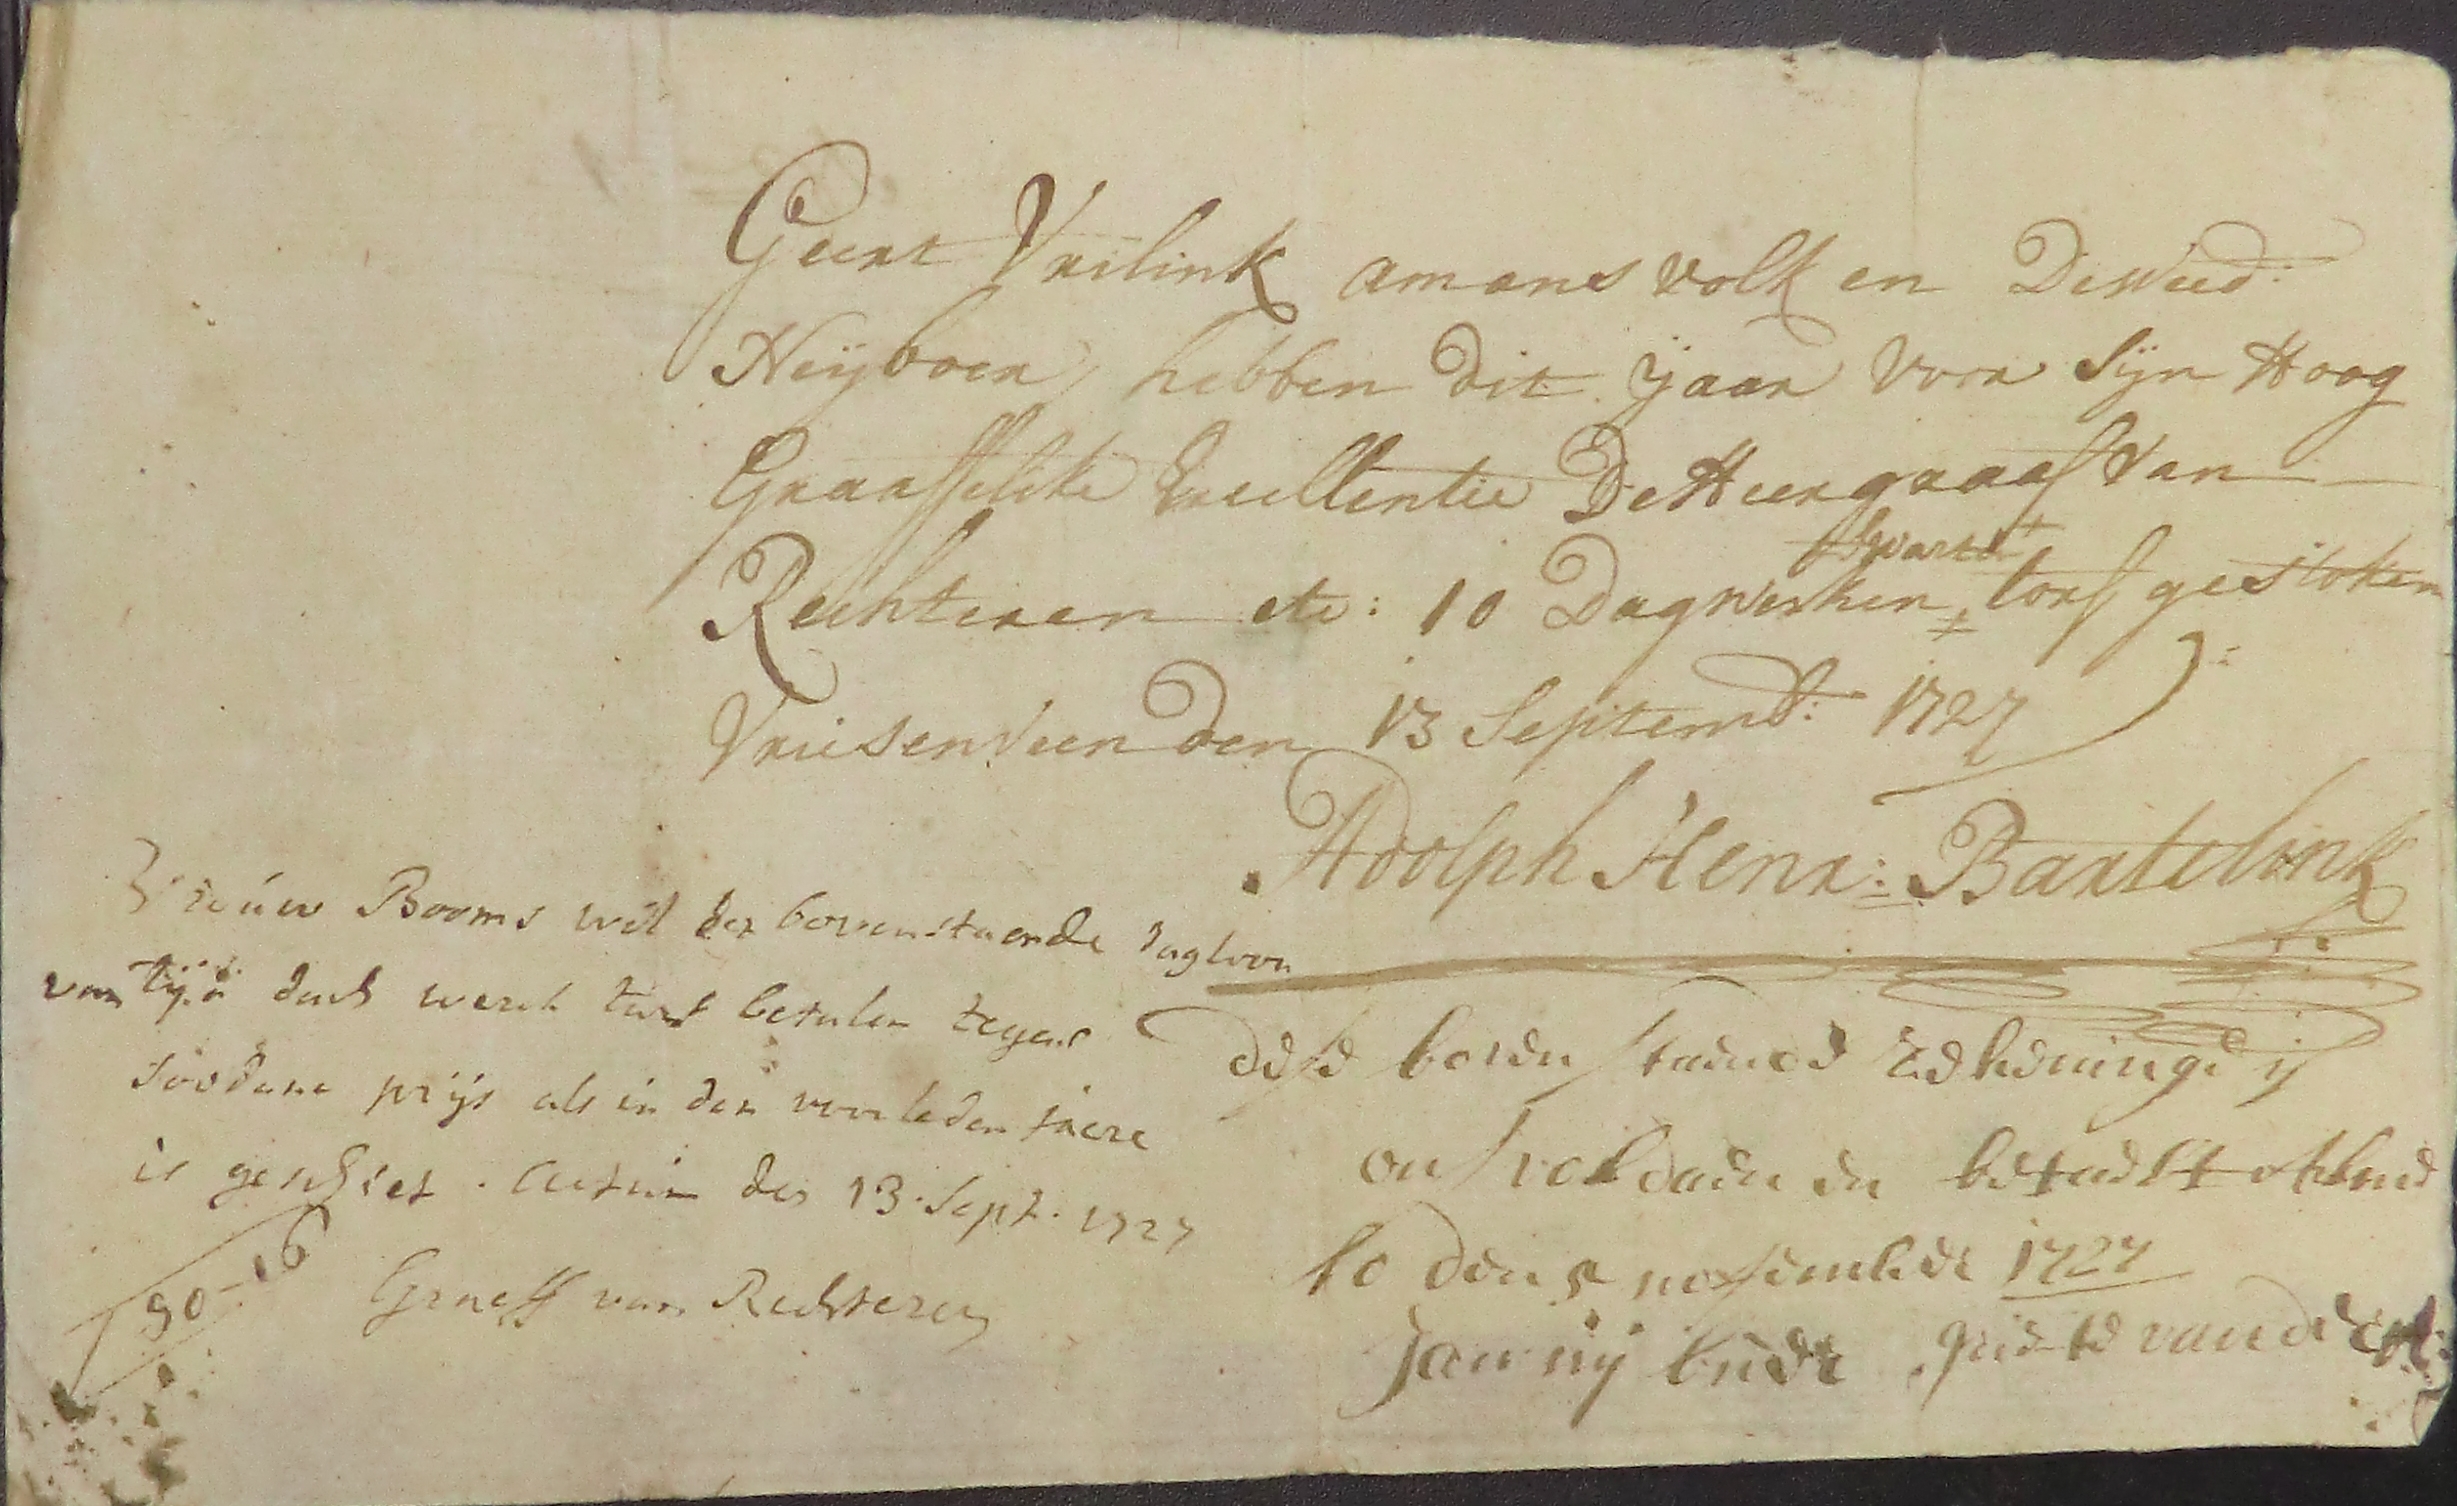 Geert Vrilink amans volk en De Wed:
Neyboer, hebben dit yaar voor Sijn Hoog
Graaffelike Excellentie De Heer graaf van
Rechteren etc: 10 Dagwerken swarte torf gestoken
Vriesenveen den 13 Septemb: 1727
Adolph Henr: Bartelink
Vrouw Booms wil de bovenstaende dagloon
van tijn dach werck turf betalen tegens
soodane prijs als in den voorleden jaere
is geschiet. Actum den 13. Sept. 1727
90-16
Graeff van Rechteren
dese boven staende rekeninge is
ons voldaen en betaelt Alme
lo den 5 november 1727
Jan nij buer